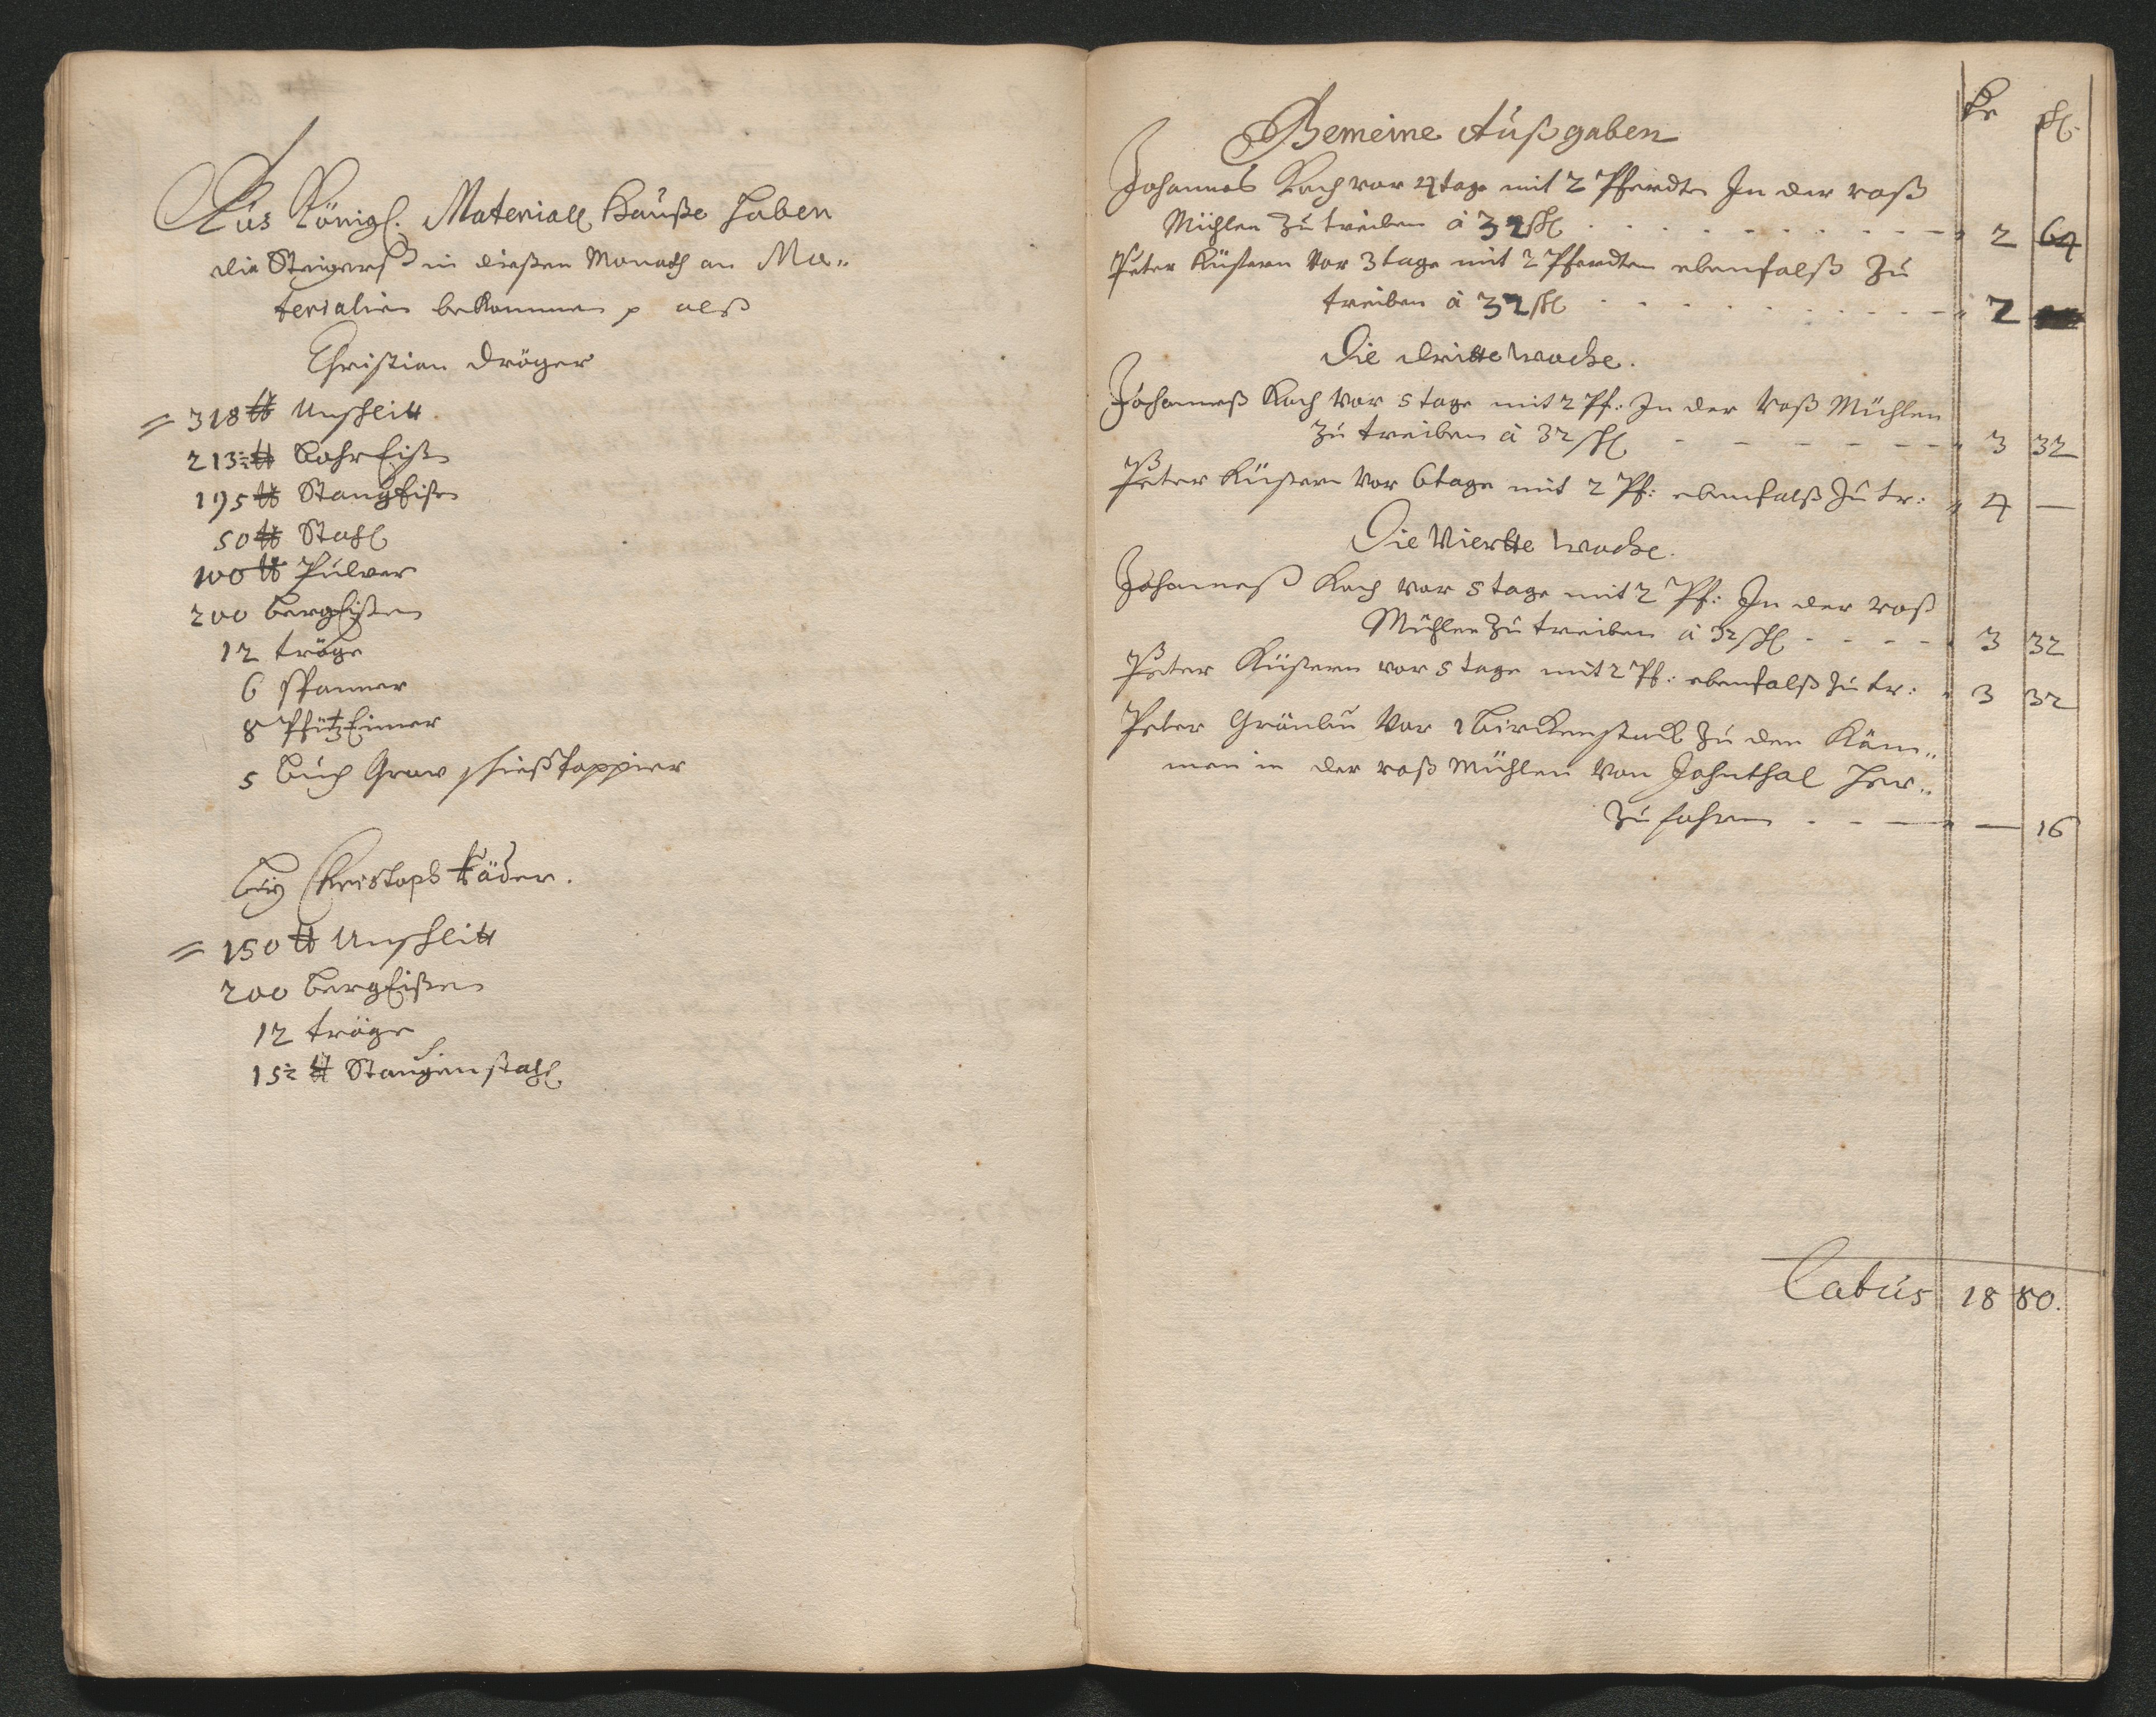 Aus Königl. Materiall Hauße haben
die Steigers in dießen Monath an Ma„
terialien bekommen p alß
Christian Dröger
= 318 ℔ Unschlitt
213½ ℔ Bohr Eißen
195 ℔ Stang Eißen
50 ℔ Stahl
100 ℔ Pulver
200 berg Eißen
12 tröge
6 spanner
8 Pfütz Eimer
5 Buch Graw schieß Pappier
bey Christoph
= 150 ℔ Unschlitt
200 berg Eißen
12 tröge
15½ ℔ Stangen stahl
Gemeine Außgaben
Johannes Koch vor 4 tage mit 2 Pferdte In der roß
Mühlen zu treiben à 32 ßl 2 64
Peter Küstern vor 3 tage mit 2 Pferdten ebenfalß zu
treiben à 32 ßl 2
Die dritte woche.
Johanneß Koch vor 5 tage mit 2 Pf: In der Roß Mühlen
zu treiben à 32 ßl 3 32
Peter Küstern vor 6 tage mit 2 Pf: ebenfalß zu tr: 4 —
Die Vierte woche.
Johanneß Koch vor 5 tage mit 2 Pf: In der roß
Mühlen zu treiben à 32 ßl 3 32
Peter Küstern vor 5 tage mit 2 Pf: ebenfalß zu tr: 3 32
Peter vor 1 Birckenstock zu den Käm„
men in der roß Mühlen von Johnthal her„
zu fahren — 16
Latus 18 80.